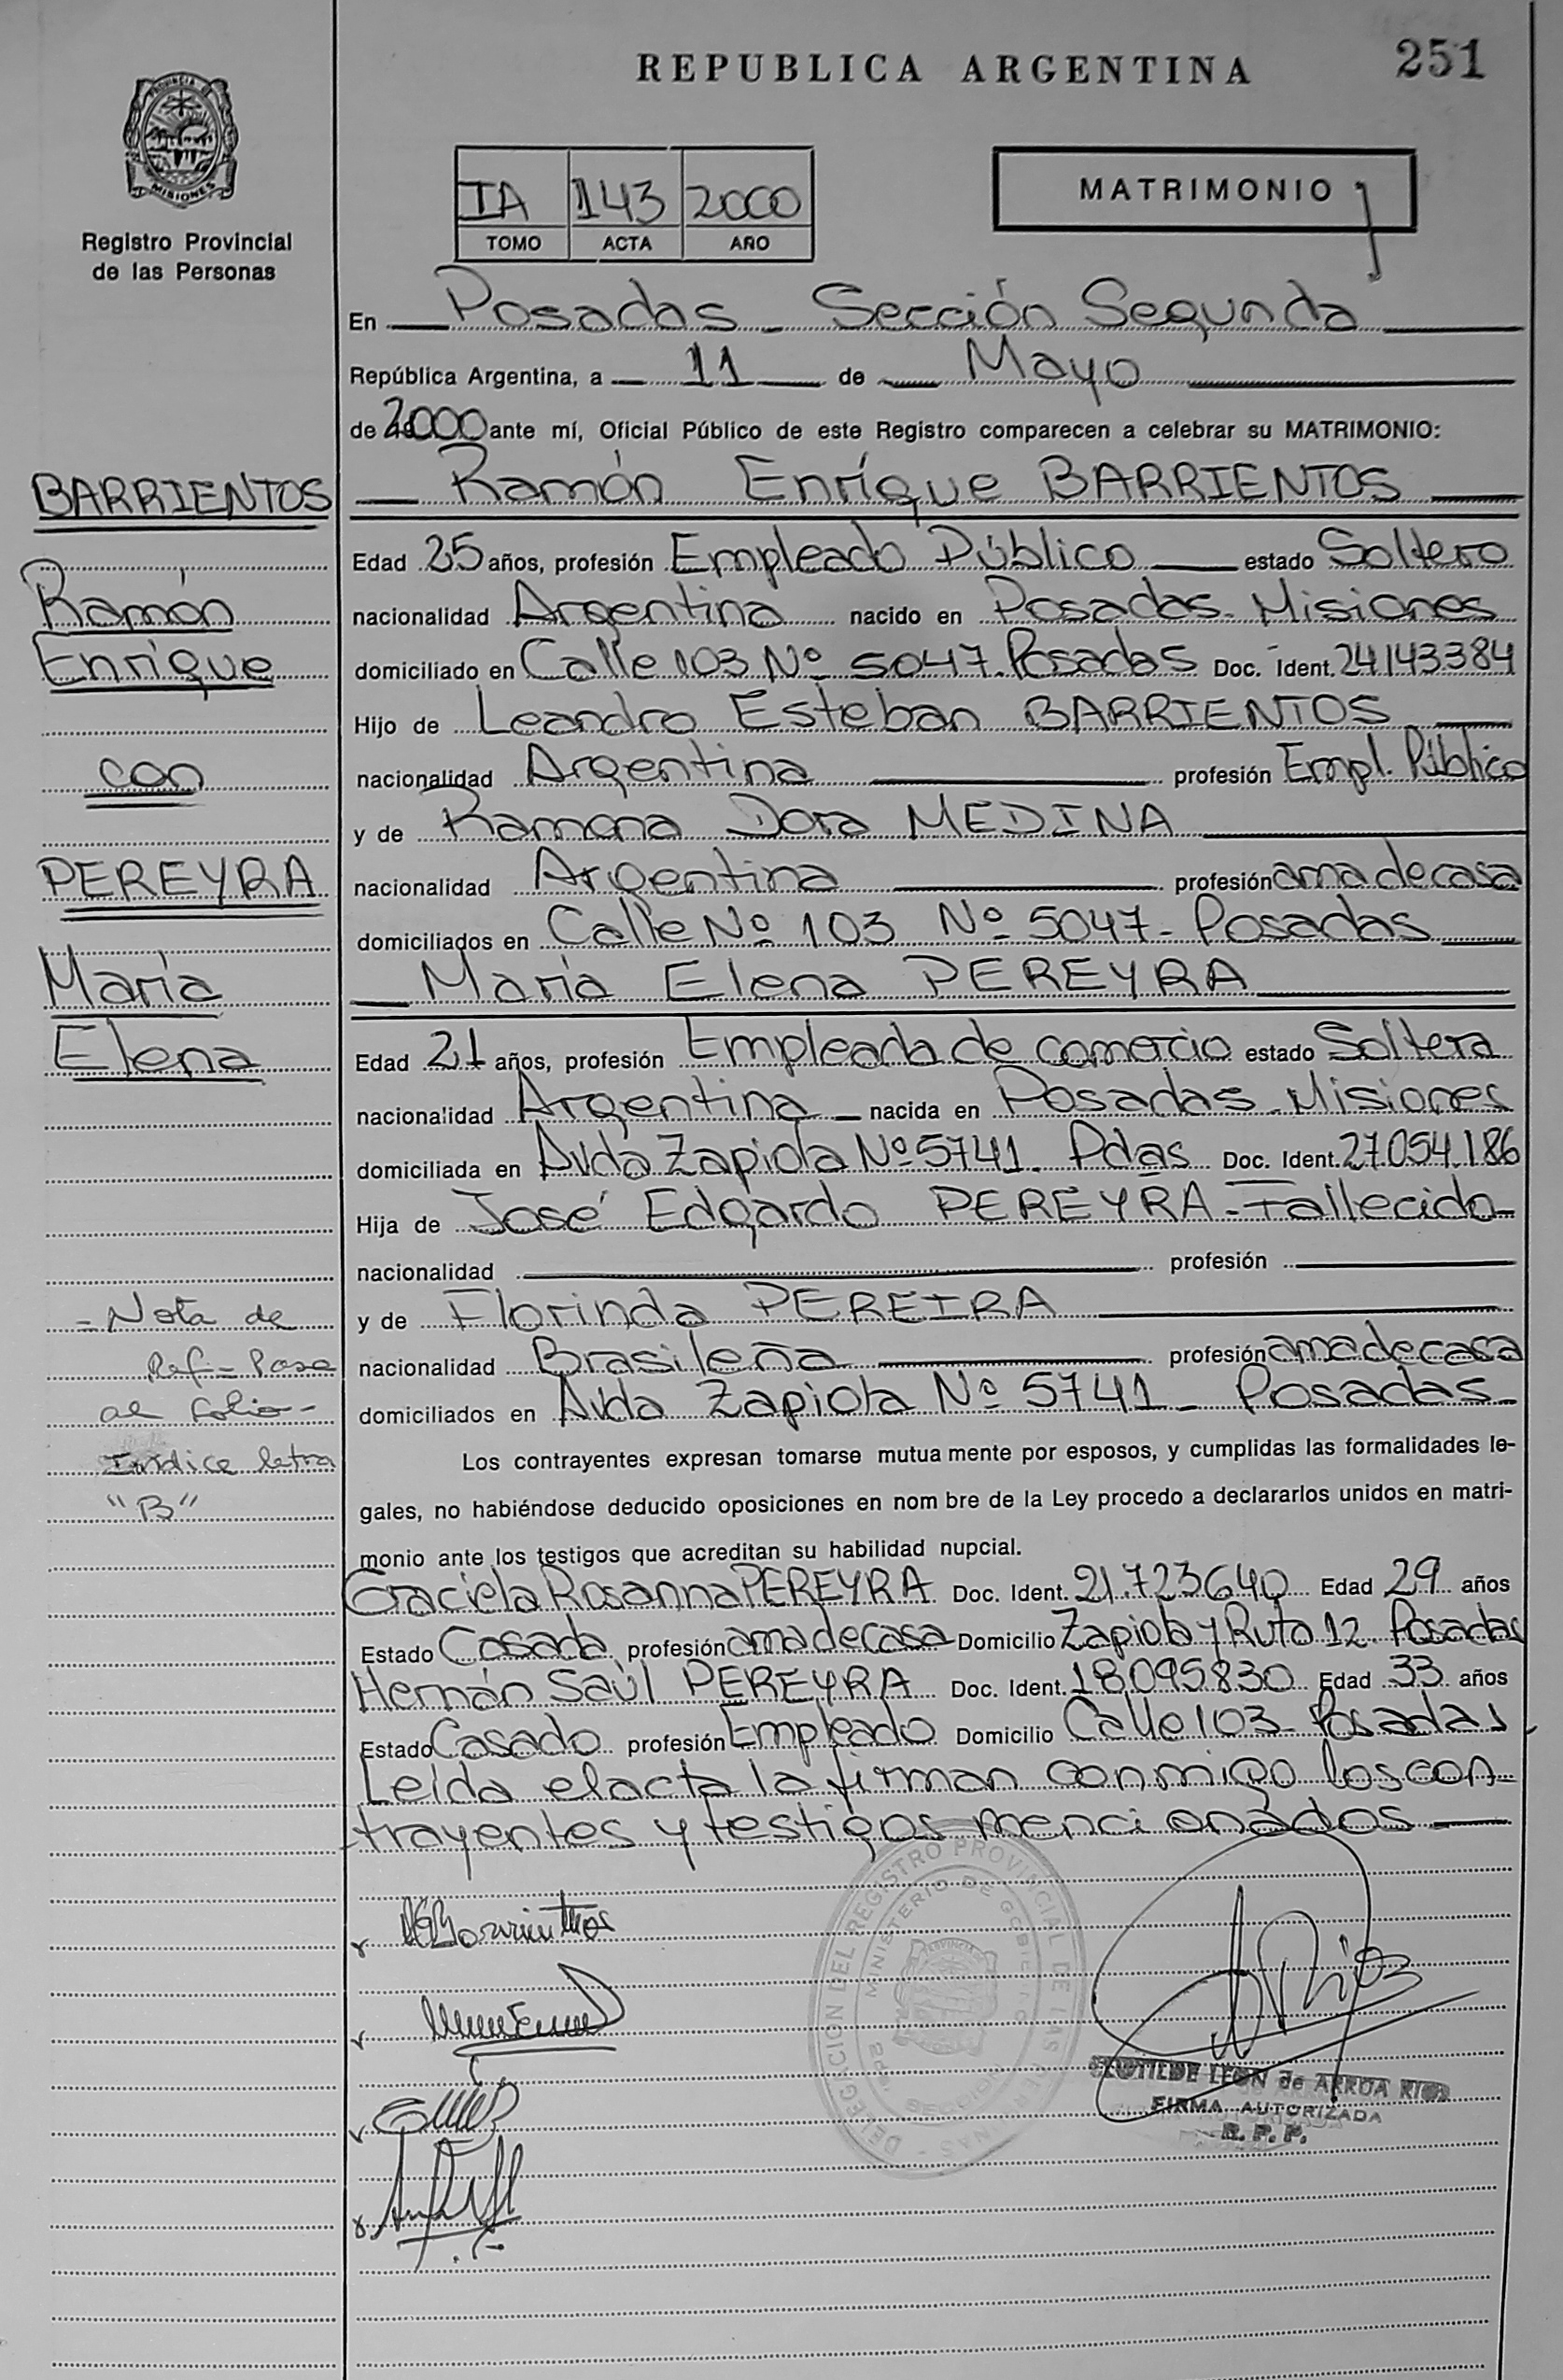 REPUBLICA ARGENTINA 251
PROVINCIA DE
MISIONES
Registro Provincial
de las Personas
IA 143 2000
TOMO ACTA AÑO
MATRIMONIO
En Posadas - Sección Segunda
República Argentina, a 11 de Mayo
de 2000 ante mí, Oficial Público de este Registro comparecen a celebrar su MATRIMONIO:
Ramón Enríque BARRIENTOS
Edad 25 años, profesión Empleado Público estado Soltero
nacionalidad Argentina nacido en Posadas - Misiones
domiciliado en Calle 103 Nº 5047. Posadas Doc. Ident. 24.143.384
Hijo de Leandro Esteban BARRIENTOS
nacionalidad Argentina profesión Empl. Público
y de Ramona Dora MEDINA
nacionalidad Argentina profesión ama de casa
domiciliados en Calle Nº 103 Nº 5047 - Posadas
María Elena PEREYRA
Edad 21 años, profesión Empleada de comercio estado Soltera
nacionalidad Argentina nacida en Posadas - Misiones
domiciliada en Avda Zapiola Nº 5741. Pdas Doc. Ident. 27.054.186
Hija de José Edgardo PEREYRA - Fallecido
nacionalidad profesión
y de Florinda PEREIRA
nacionalidad Brasileña profesión ama de casa
domiciliados en Avda Zapiola Nº 5741 - Posadas
Los contrayentes expresan tomarse mutua mente por esposos, y cumplidas las formalidades le-
gales, no habiéndose deducido oposiciones en nom bre de la Ley procedo a declararlos unidos en matri-
monio ante los testigos que acreditan su habilidad nupcial.
Graciela Rosanna PEREYRA Doc. Ident. 21.723640 Edad 29 años
Estado Casada profesión ama de casa Domicilio Zapiola y Ruta 12 Posadas
Hernán Saúl PEREYRA Doc. Ident. 18.095.830 Edad 33 años
Estado Casado profesión Empleado Domicilio Calle 103 - Posadas
Leída el acta la firman conmigo los con-
trayentes y testigos mencionados
BARRIENTOS
Ramón
Enríque
con
PEREYRA
María
Elena
- Nota de
Ref - Pase
al folio -
Indice letra
"B"
DELEGACION DEL REGISTRO PROVINCIAL DE LAS PERSONAS
MINISTERIO DE GOBIERNO
CLOTILDE LEON de ARRUA RIOS
FIRMA AUTORIZADA
R. P. P.